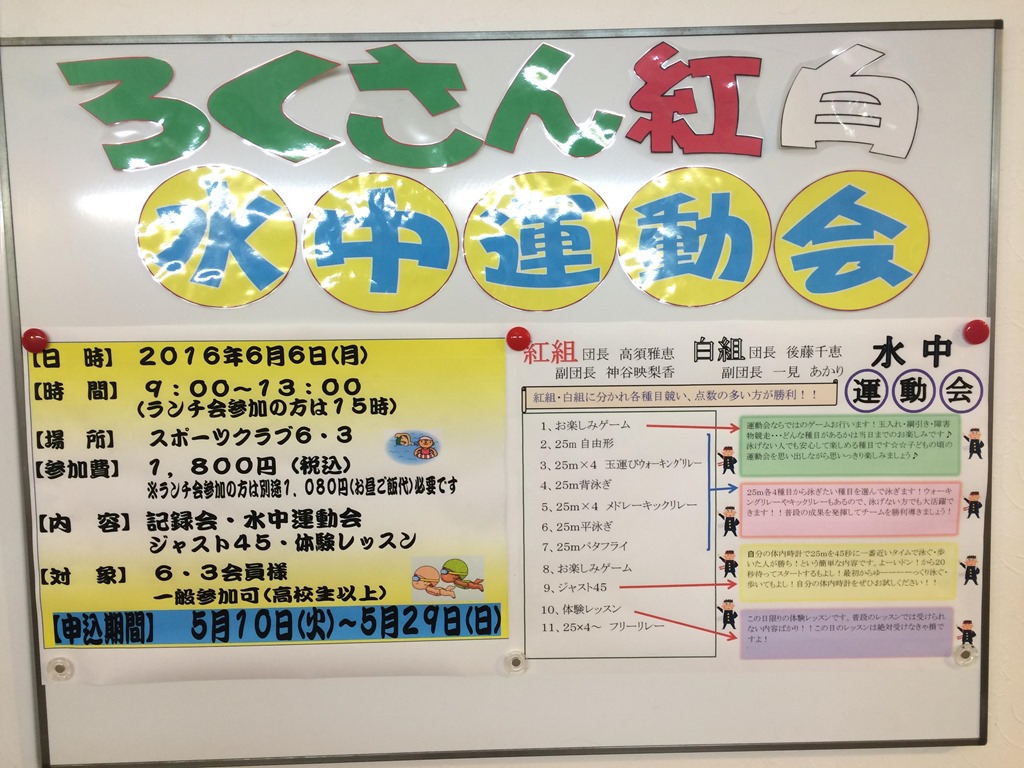 ろくさん紅白
水中運動会
【日　時】　2016年6月6日(月)
【時　間】　9：00～13：00
(ランチ会参加の方は15時)
【場　所】　スポーツクラブ6・3
【参加費】　1,800円（税込）
※ランチ会参加の方は別途1,080円(お昼ご飯代)必要です
【内　容】記録会・水中運動会
ジャスト45・体験レッスン
【対　象】　6・3会員様
一般参加可(高校生以上)
【申込期間】　5月10日(火)～5月29日(日)
紅組 団長　高須雅恵　白組 団長　後藤千恵
副団長　神谷映梨香　副団長　一見　あかり
水中
運動会
紅組・白組に分かれ各種目競い、点数の多い方が勝利！！
1、お楽しみゲーム
2、25m 自由形
3、25m×4　玉運びウォーキングリレー
4、25m背泳ぎ
5、25m×4　メドレーキックリレー
6、25m平泳ぎ
7、25mバタフライ
8、お楽しみゲーム
9、ジャスト45
10、体験レッスン
11、25×4～　フリーリレー
運動会ならではのゲームお行います！玉入れ・綱引き・障害
物競走・・・どんな種目があるかは当日までのお楽しみです♪
泳げない人でも安心して楽しめる種目です☆☆子どもの頃の
運動会を思い出しながら思いっきり楽しみましょう♪
25m各4種目から泳ぎたい種目を選んで泳ぎます！ウォーキ
ングリレーやキックリレーもあるので、泳げない方でも大活躍で
きます！！普段の成果を発揮してチームを勝利導きましょう！
自分の体内時計で25mを45秒に一番近いタイムで泳ぐ・歩
いた人が勝ち！という簡単な内容です。よーいドン！から20
秒待ってスタートするもよし！最初からゆーーーーーっくり泳ぐ・
歩いてもよし！自分の体内時計をぜひお試しください！！
この日限りの体験レッスンです。普段のレッスンでは受けられ
ない内容ばかり！！この日のレッスンは絶対受けなきゃ損で
すよ！